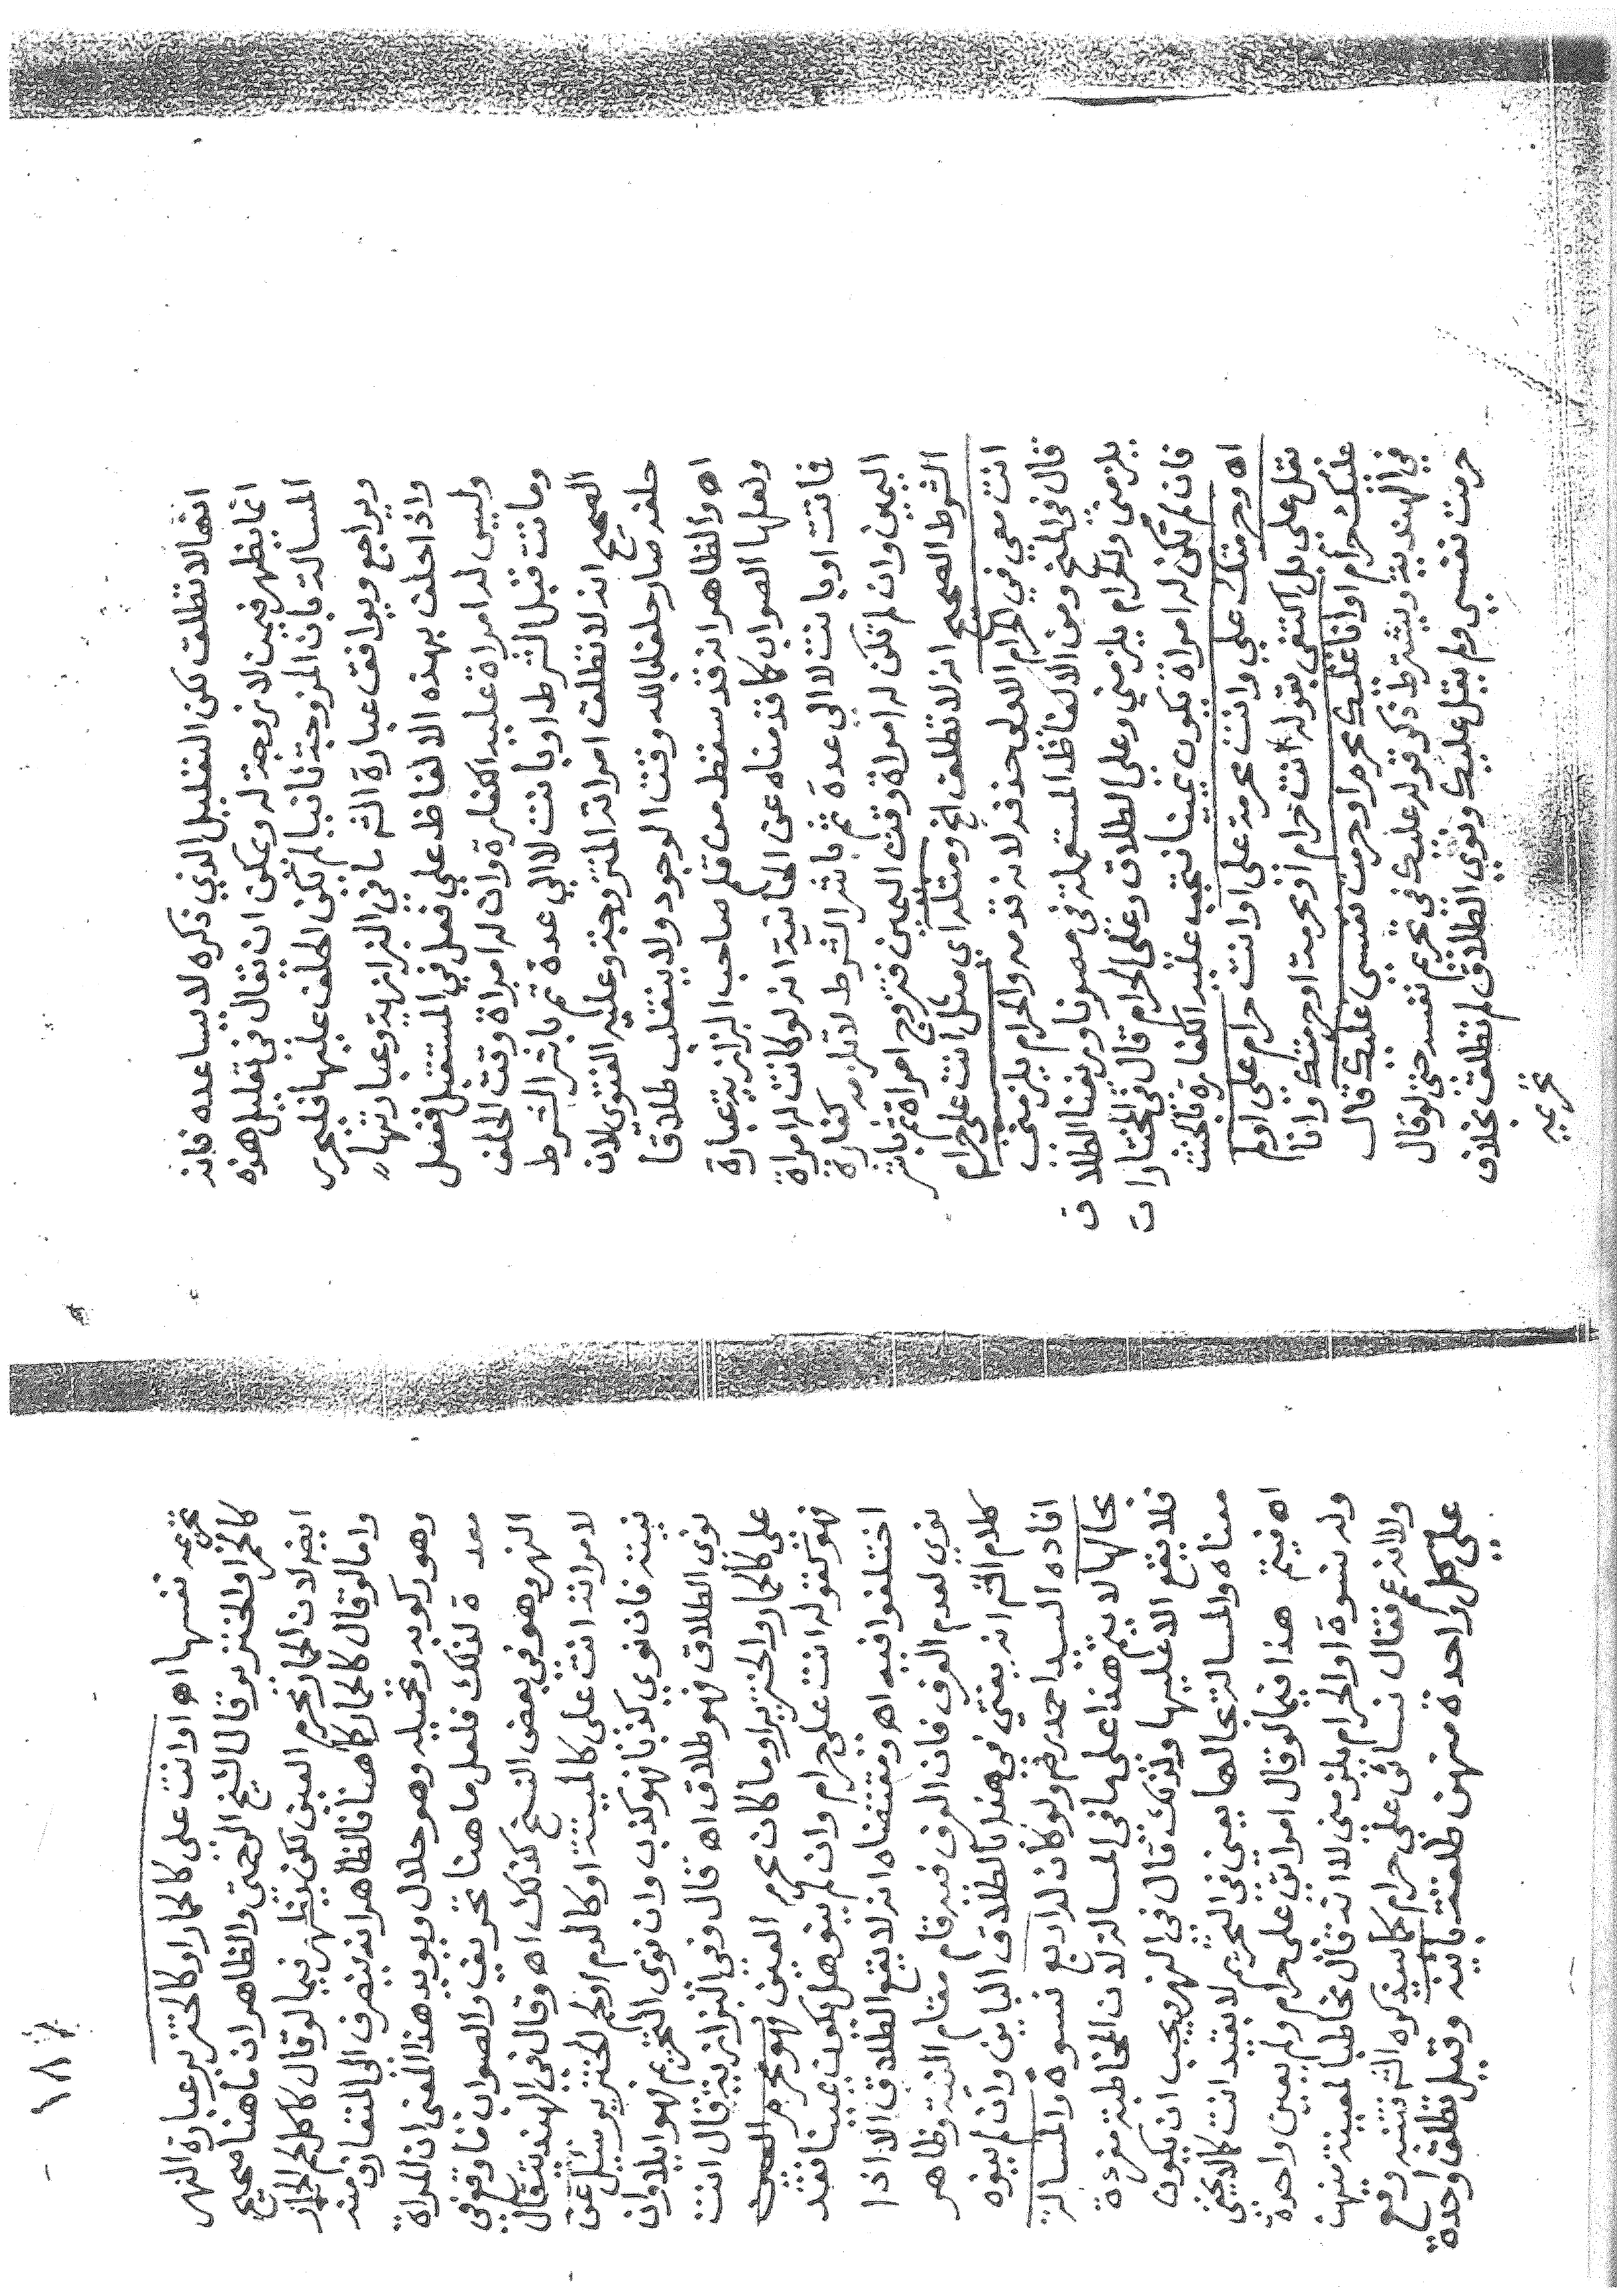 انها لا تطلق لكن التعليل الذي ذكره لا يساعده فانه
انما يظهر فيمن لا زوجة له ويمكن ان يقال في تعليل هذه
المسالة بان المزوجة ثانيا لم تكن الحلف عليها فليحرر
ويراجع ويوافق عبارة الشم ما في البزازية وعبارتها
واذا حلف بهذه الالفاظ علي فعل في المستقبل ففعل
وليس له امراة عليه الكفارة وان له امراة وقت الحلف
وماتت قبل الشرط او بانت لا الي عدة ثم باشر الشرط
الصحيح انه لا تطلق امراته المتزوجة وعليه الفتوى لان
حلفه صار حلفا بالله وقت الوجود ولا ينقلب طلاقا
اه والظاهر انه قد سقط من قلم صاحب البزازية عبارة
ولعلها الصواب كما قدمناه عن الخانية انه لو كانت له امراة
فماتت او بانت لا الي عدة ثم باشر الشرط لا تلزمه كفارة
اليمين وان لم تكن له امراة وقت اليمين فتزوج امراة ثم باشر
الشرط الصحيح انه لا تطلق الخ ومثله اي مثل انت علي حرام
انت معي في الحرام الاولى حذفه لانه تقدم والحرام يلزمني
قال في المنح ومن الالفاظ المستعملة في مصرنا وريفنا الطلاق
يلزمني والحرام يلزمني وعلي الطلاق وعلي الحرام قال في المختارات
فان لم تكن له امراة يكون يمينا فتجب عليه الكفارة بالحنث
اه وحرمتك علي وانت محرمة علي او انت حرام علي او لم
يقل علي بل اكتفى بقوله انت حرام او محرمة او حرمتك وانا
عليك حرام او انا عليك محرم او حرمت نفسي عليك قال
في الهندية ويشترط ذكر قوله عليك في تحريم نفسه حتى لو قال
حرمت نفسي ولم يقل عليك ونوي الطلاق لم تطلق بخلاف
تحريمه
١٨٦
تحريمه نفسها اه او انت علي كالحمار او كالخنزير عبارة النهر
كالخمر والخنزير قال الشيخ الرحمتي والظاهر ان ما هنا صحيح
ايضا لان الحمار محرم العين لكن يظهر فيما لو قال كلحم الحمار
واما لو قال كالحمار كما هنا فالظاهر انه ينصرف الى المتعارف منه
وهو ركوبه وتحميله وهو حلال ويويد هذا المعنى ان المراة
لذلك فلعل ما هنا تحريف والصواب ما وقع في
النهر وهو في بعض النسخ كذلك اه وقال في الهندية قال
لامراته انت علي كالميتة او كالدم او لحم الخنزير يسئل عن
نيته فان نوي كذبا فهو كذب وان نوى التحريم فهو ايلاء وان
نوى الطلاق فهو طلاق اه قال وفي البزازية قال انت
علي كالحمار والخنزير او ما كان محرم العين فهو محرم
فهو كقوله انت علي حرام وان لم ينو هل يكون يمينا فقد
اختلفوا فيه اه ومقتضاه انه لا يقع الطلاق الا اذا
نوي لعدم العرف فان العرف فيه قام مقام النية وظاهر
كلام الشم انه يفتي في هذا بالطلاق الباين وان لم ينوه
افاده السيد احمد رحم ولو كان له اربع نسوة والمسالة
بحالها لا يتم هذا على ما في المسالة لان المخاطبة مفردة
فلا يقع الا عليها ولذلك قال في النهر يجب ان يكون
معناه والمسالة بحالها يعني في التحريم لا بقيد انت كالاجنبي
اه فيتم هذا فيما لو قال امراتي علي حرام ولم يعين واحدة
وله نسوة او الحرام يلزمني لا انه قال مخاطبا لمعينة منهن
ولا انه عم فقال نسائي علي حرام كما سيذكره الشم وقع
علي كل واحدة منهن طلقة باينة وقيل تطلق واحدة